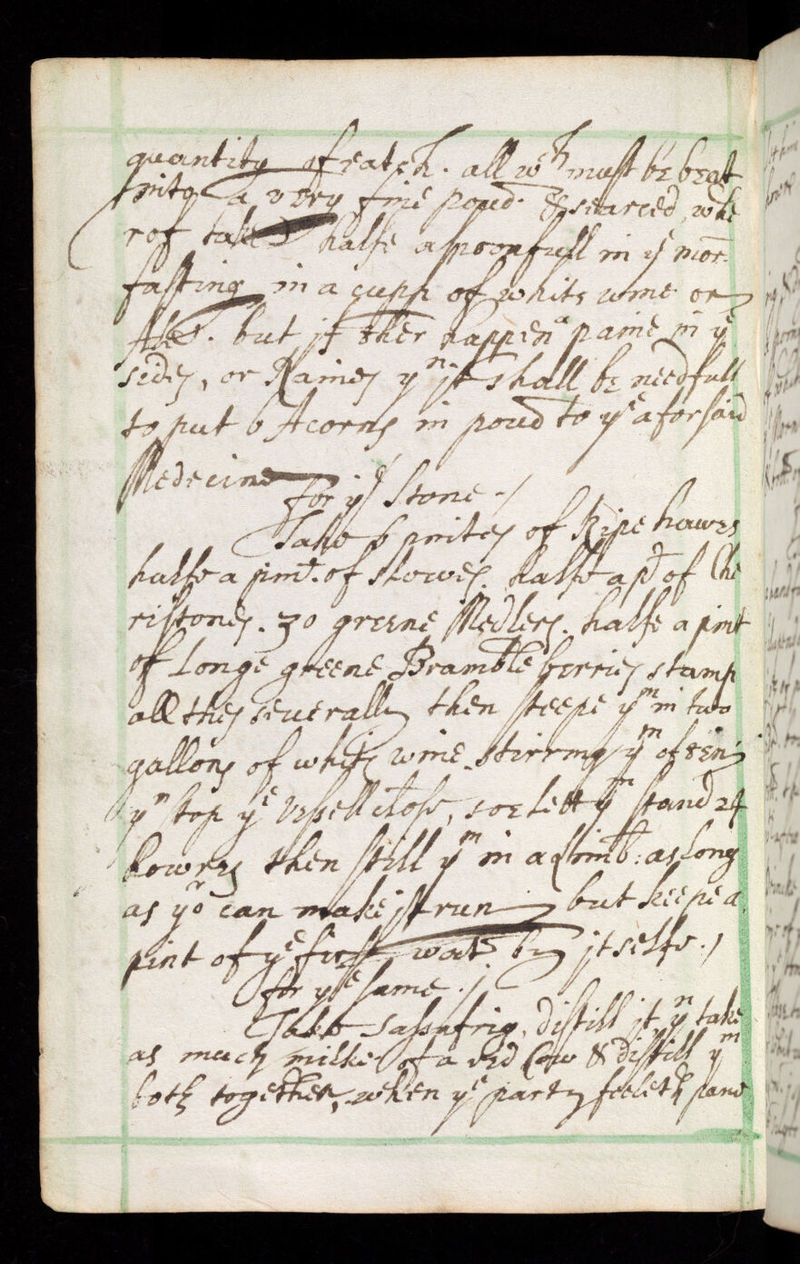 quantity of eatch. all wch must be beat
into a very fine poud. & searced, whe
rof take halfe a spoonfull in ye mor
fasting in a cupp of white wine or
Ale. but if ther happen a paine in ye
sides, or Raines yn it shall be needfull
to put 6 Acorns in poud to ye aforsaid
Medecine
for ye Stone ./
Take 6 pintes of Ripe hawes
halfe a pint. of slowes. halfe a pd of Che
ristones. 30 greene Medlers. halfe a pint
of Longe greene Bramble berries stamp
all thes severally then steepe ym in two
gallons of white wine stirring ym often
yn stop ye vessell close, soe lett ym stand 24
howres then still ym in a Limb: as long
as yo can make it run but keepe a
pint of ye first watr by it selfe ./
for ye same ./
Take sassafrig, distill it yn take
as much milke of a red Cow & distill ym
both together, when ye party feeleth pane